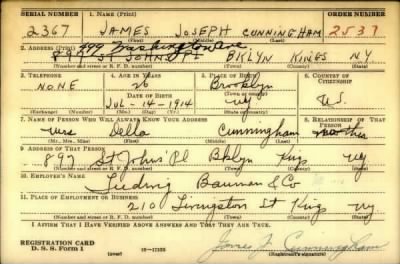 SERIAL NUMBER 1. NAME (Print) ORDER NUMBER
2367 JAMES JOSEPH CUNNINGHAM 2537
(First) (Middle) (Last)
2. ADDRESS (Print) 499 Washington Ave
897 ST JOHNS PL BKLYN KINGS NY
(Number and street or R. F. D. number) (Town) (County) (State)
3. TELEPHONE 4. AGE IN YEARS 5. PLACE OF BIRTH 6. COUNTRY OF CITIZENSHIP
NONE 26 Brooklyn
DATE OF BIRTH (Town or county)
JUL-14-1914 NY U.S.
(Exchange) (Number) (Mo.) (Day) (Yr.) (State or country)
7. NAME OF PERSON WHO WILL ALWAYS KNOW YOUR ADDRESS 8. RELATIONSHIP OF THAT PERSON
Mrs Della Cunningham mother
(Mr., Mrs., Miss) (First) (Middle) (Last)
9. ADDRESS OF THAT PERSON
897 St Johns' Pl Bklyn Kings NY
(Number and street or R. F. D. number) (Town) (County) (State)
10. EMPLOYER'S NAME
Ludwig Bauman & Co
11. PLACE OF EMPLOYMENT OR BUSINESS
210 Livingston St Kings NY
(Number and street or R. F. D. number) (Town) (County) (State)
I AFFIRM THAT I HAVE VERIFIED ABOVE ANSWERS AND THAT THEY ARE TRUE.
REGISTRATION CARD
D. S. S. FORM 1 (over) 16—17105 James J. Cunningham
(Registrant's signature)